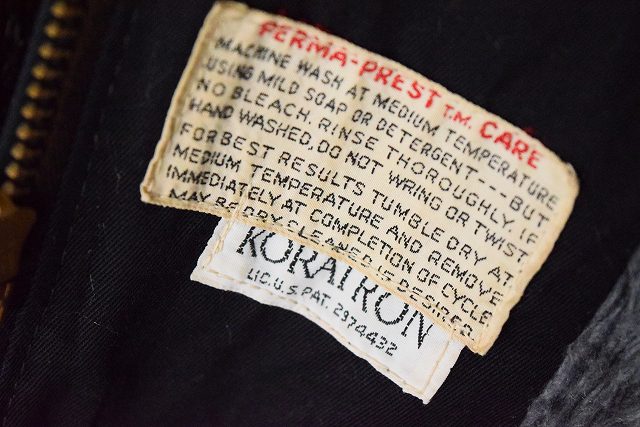 PERMA-PREST T.M. CARE
MACHINE WASH AT MEDIUM TEMPERATURE
USING MILD SOAP OR DETERGENT---BUT
NO BLEACH. RINSE THOROUGHLY. IF
HAND WASHED, DO NOT WRING OR TWIST.
FOR BEST RESULTS TUMBLE DRY AT
MEDIUM TEMPERATURE AND REMOVE
IMMEDIATELY AT COMPLETION OF CYCLE.
MAY BE DRY CLEANED IF DESIRED
KORATRON
LIC. U.S. PAT. 2974432